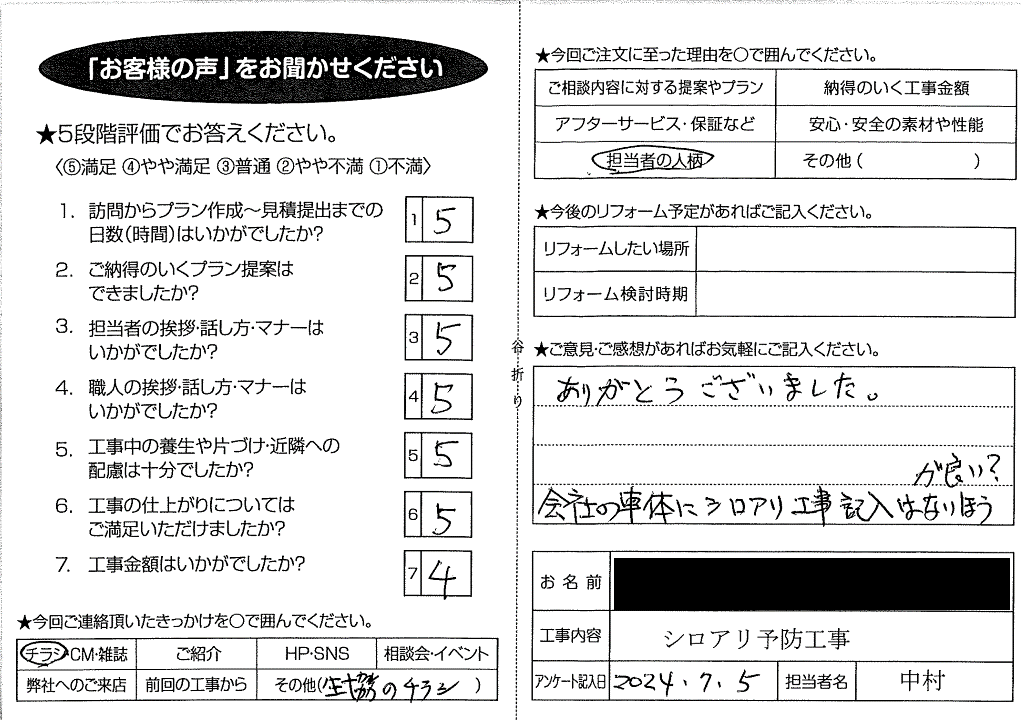 「お客様の声」をお聞かせください
★5段階評価でお答えください。
〈⑤満足 ④やや満足 ③普通 ②やや不満 ①不満〉
1. 訪問からプラン作成〜見積提出までの
日数(時間)はいかがでしたか?
1 5
2. ご納得のいくプラン提案は
できましたか?
2 5
3. 担当者の挨拶・話し方・マナーは
いかがでしたか?
3 5
4. 職人の挨拶・話し方・マナーは
いかがでしたか?
4 5
5. 工事中の養生や片づけ・近隣への
配慮は十分でしたか?
5 5
6. 工事の仕上がりについては
ご満足いただけましたか?
6 5
7. 工事金額はいかがでしたか?
7 4
★今回ご連絡頂いたきっかけを○で囲んでください。
チラシ・CM・雑誌 ご紹介 HP・SNS 相談会・イベント
弊社へのご来店 前回の工事から その他(生協のチラシ)
谷折り
★今回ご注文に至った理由を○で囲んでください。
ご相談内容に対する提案やプラン 納得のいく工事金額
アフターサービス・保証など 安心・安全の素材や性能
担当者の人柄 その他( )
★今後のリフォーム予定があればご記入ください。
リフォームしたい場所
リフォーム検討時期
★ご意見・ご感想があればお気軽にご記入ください。
ありがとうございました。
会社の車体にシロアリ工事記入はないほう
が良い?
お名前
工事内容 シロアリ予防工事
アンケート記入日 2024.7.5 担当者名 中村